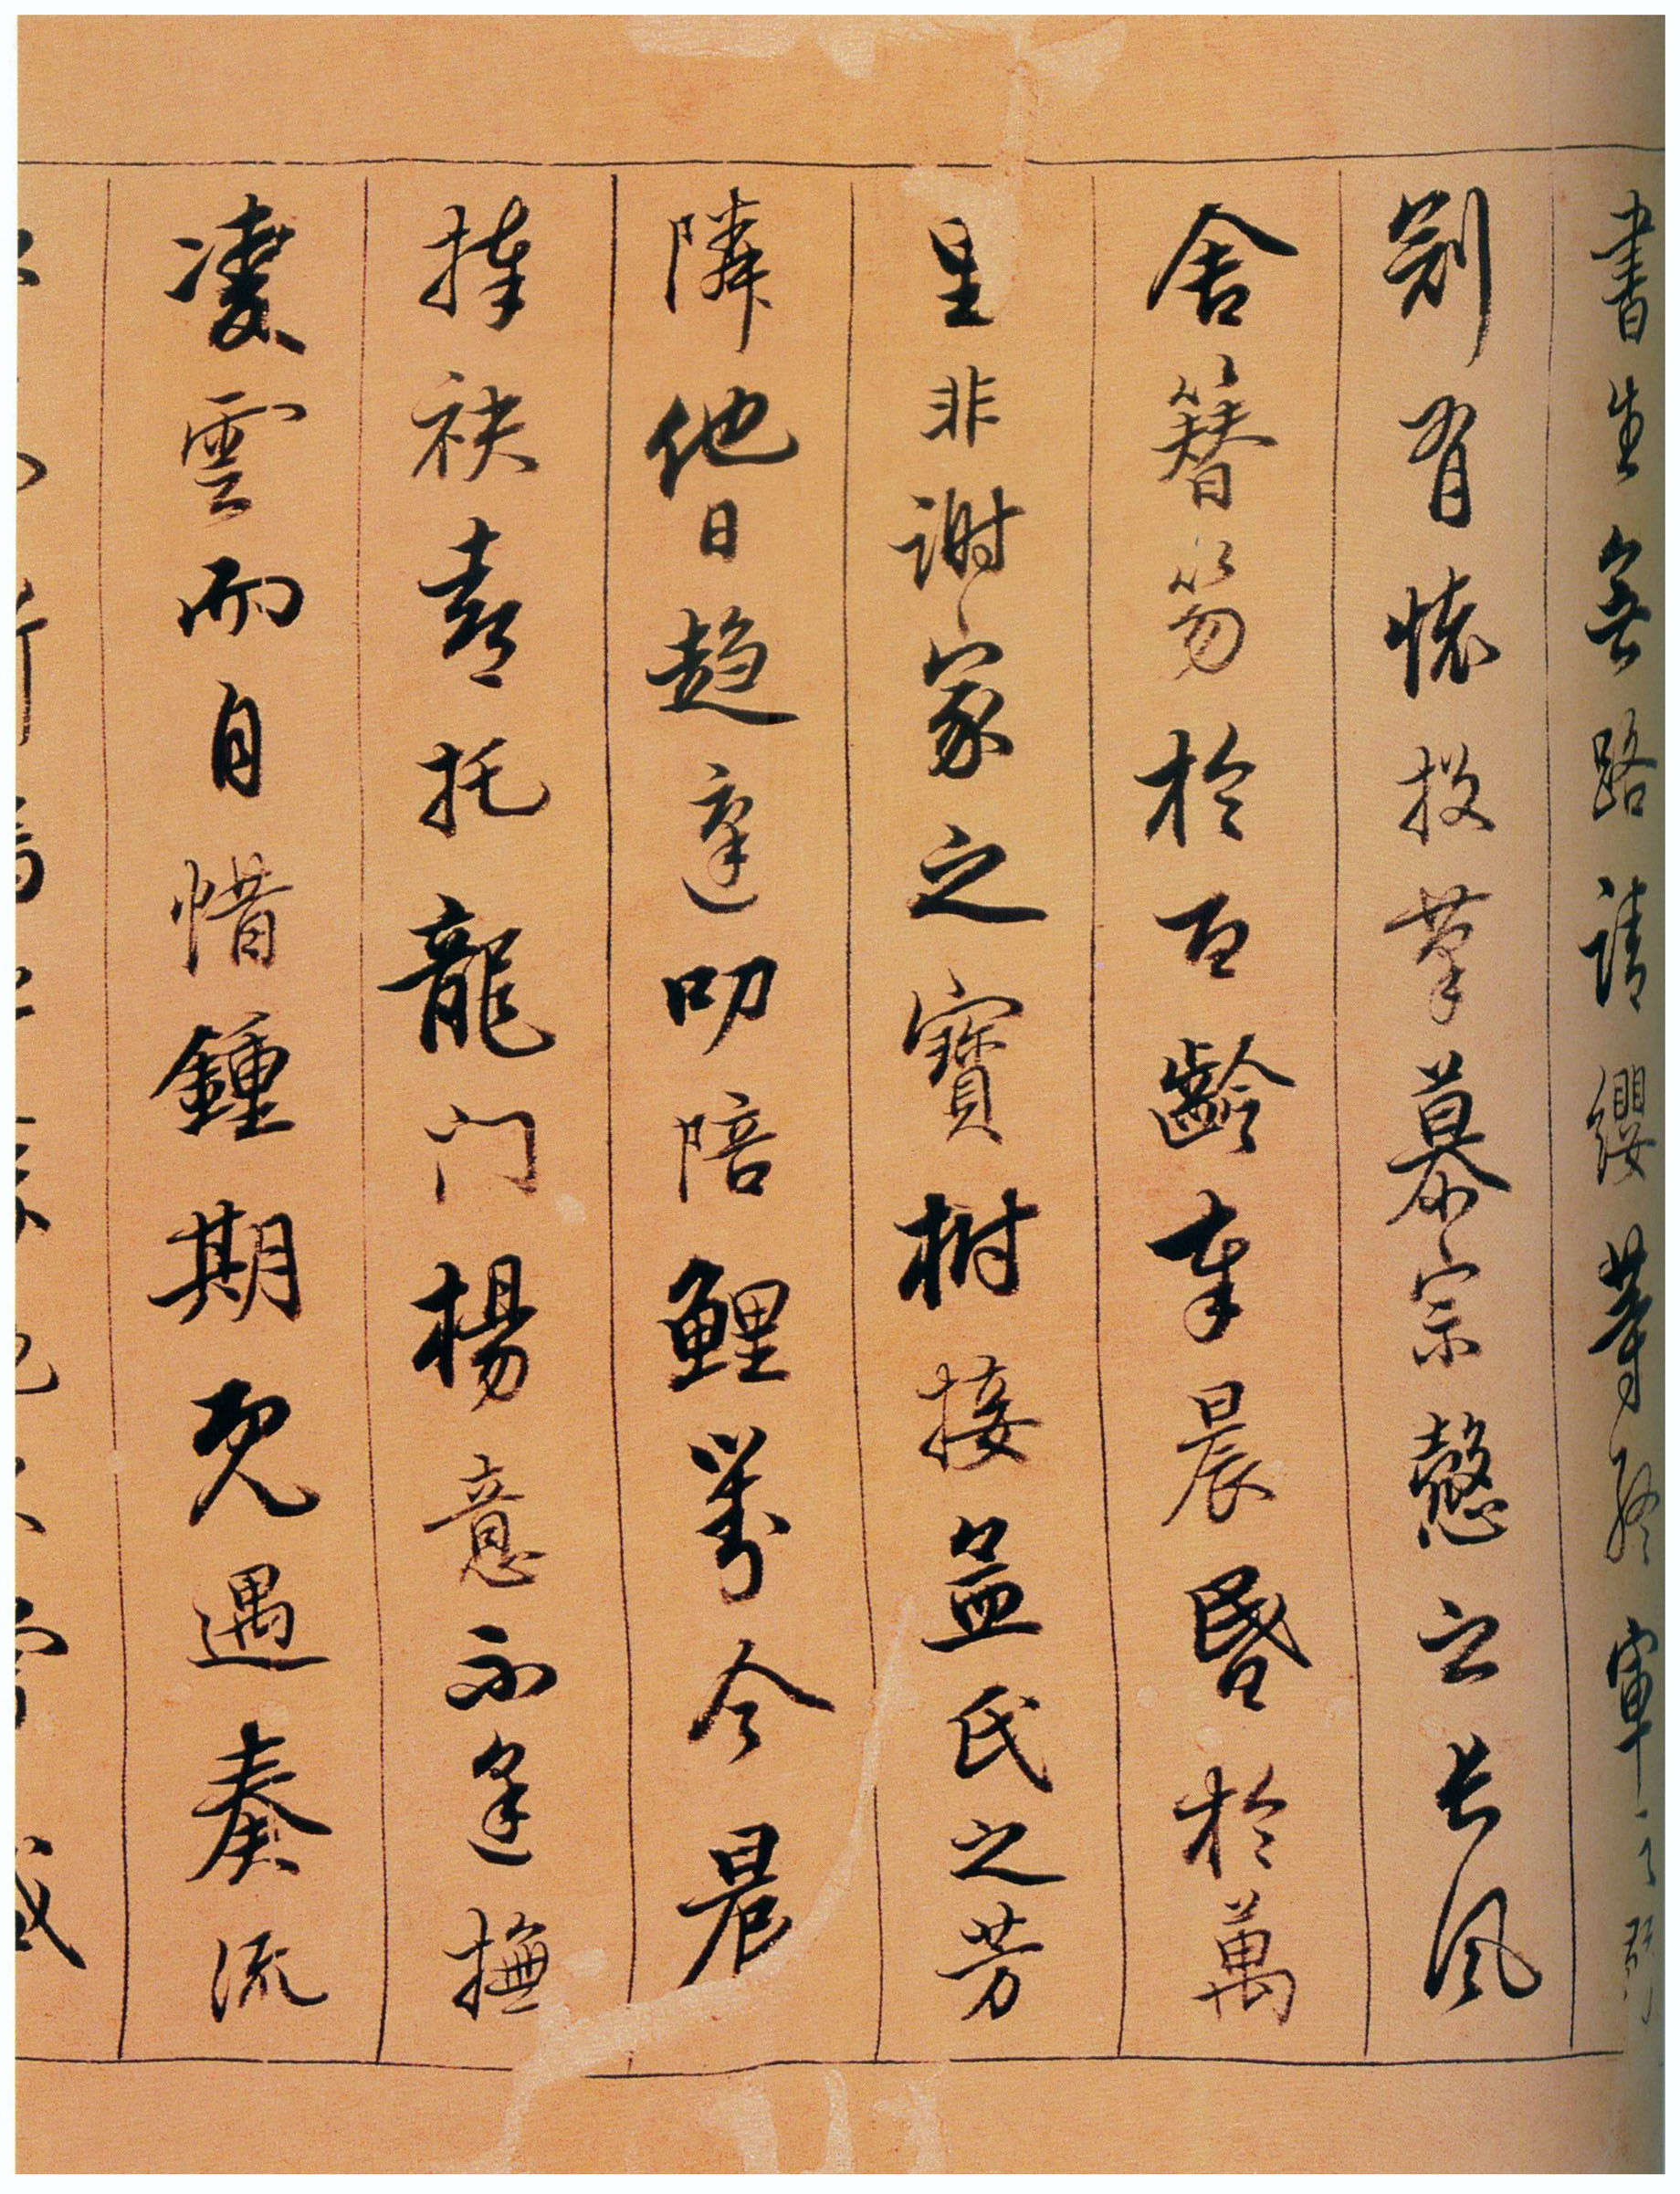 書生無路請纓等終軍之弱
冠有懷投筆慕宗愨之長風
舍簪笏於百齡奉晨昏於萬
里非謝家之寶樹接孟氏之芳
隣他日趨庭叨陪鯉對今晨
捧袂喜托龍門楊意不逢撫
凌雲而自惜鍾期既遇奏流